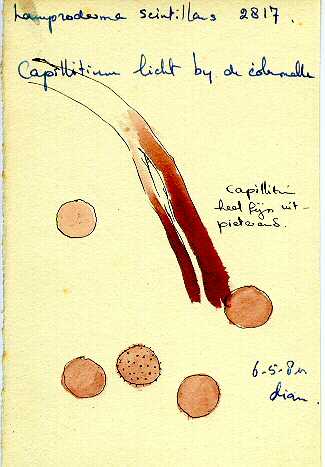 Lamproderma scintillans 2817.
Capillitium licht by de columelle
Capillitium
heel fijn uit-
pieterend.
6-5-84
dian